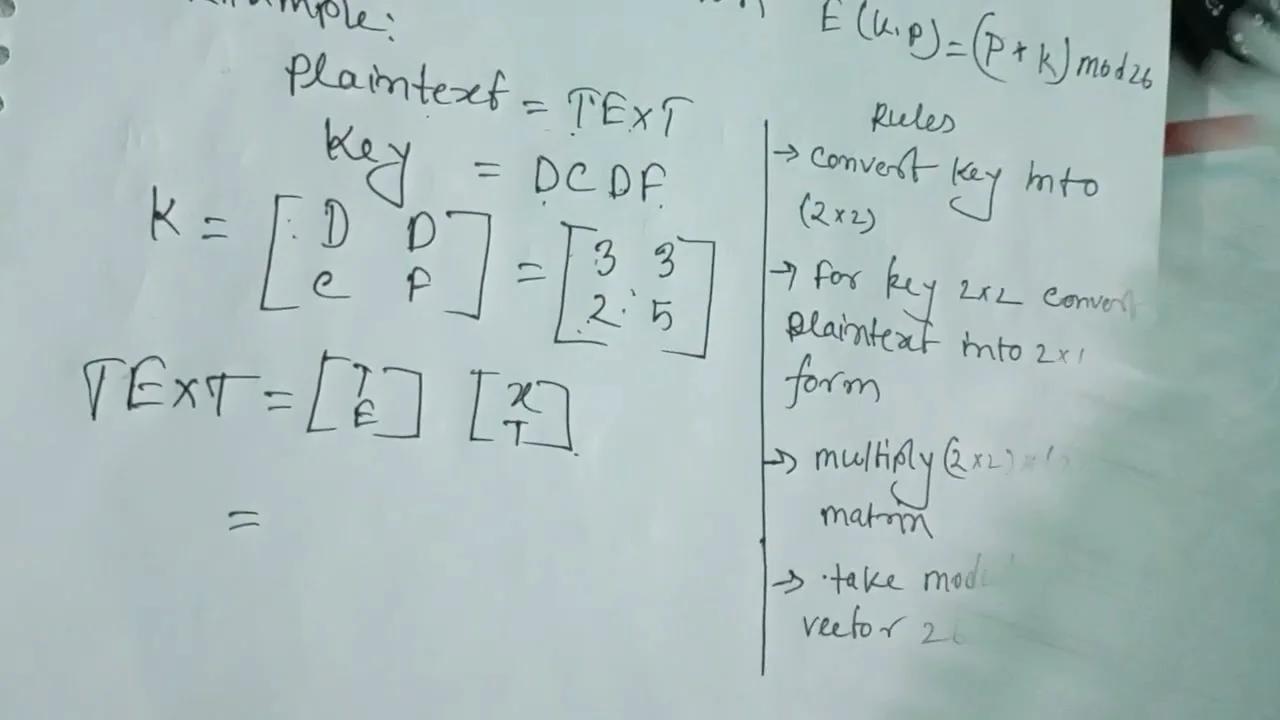 Example:
Plaintext = TExT
Key = DCDF
K = [ D D ] = [ 3 3 ]
C F 2 5
TExT = [ T ] [ x ]
E T
=
E(k,p) = (P + k) mod 26
Rules
→ convert key into
(2x2)
→ for key 2x2 convert
plaintext into 2x1
form
→ multiply (2x2) x
matrix
→ take
vector